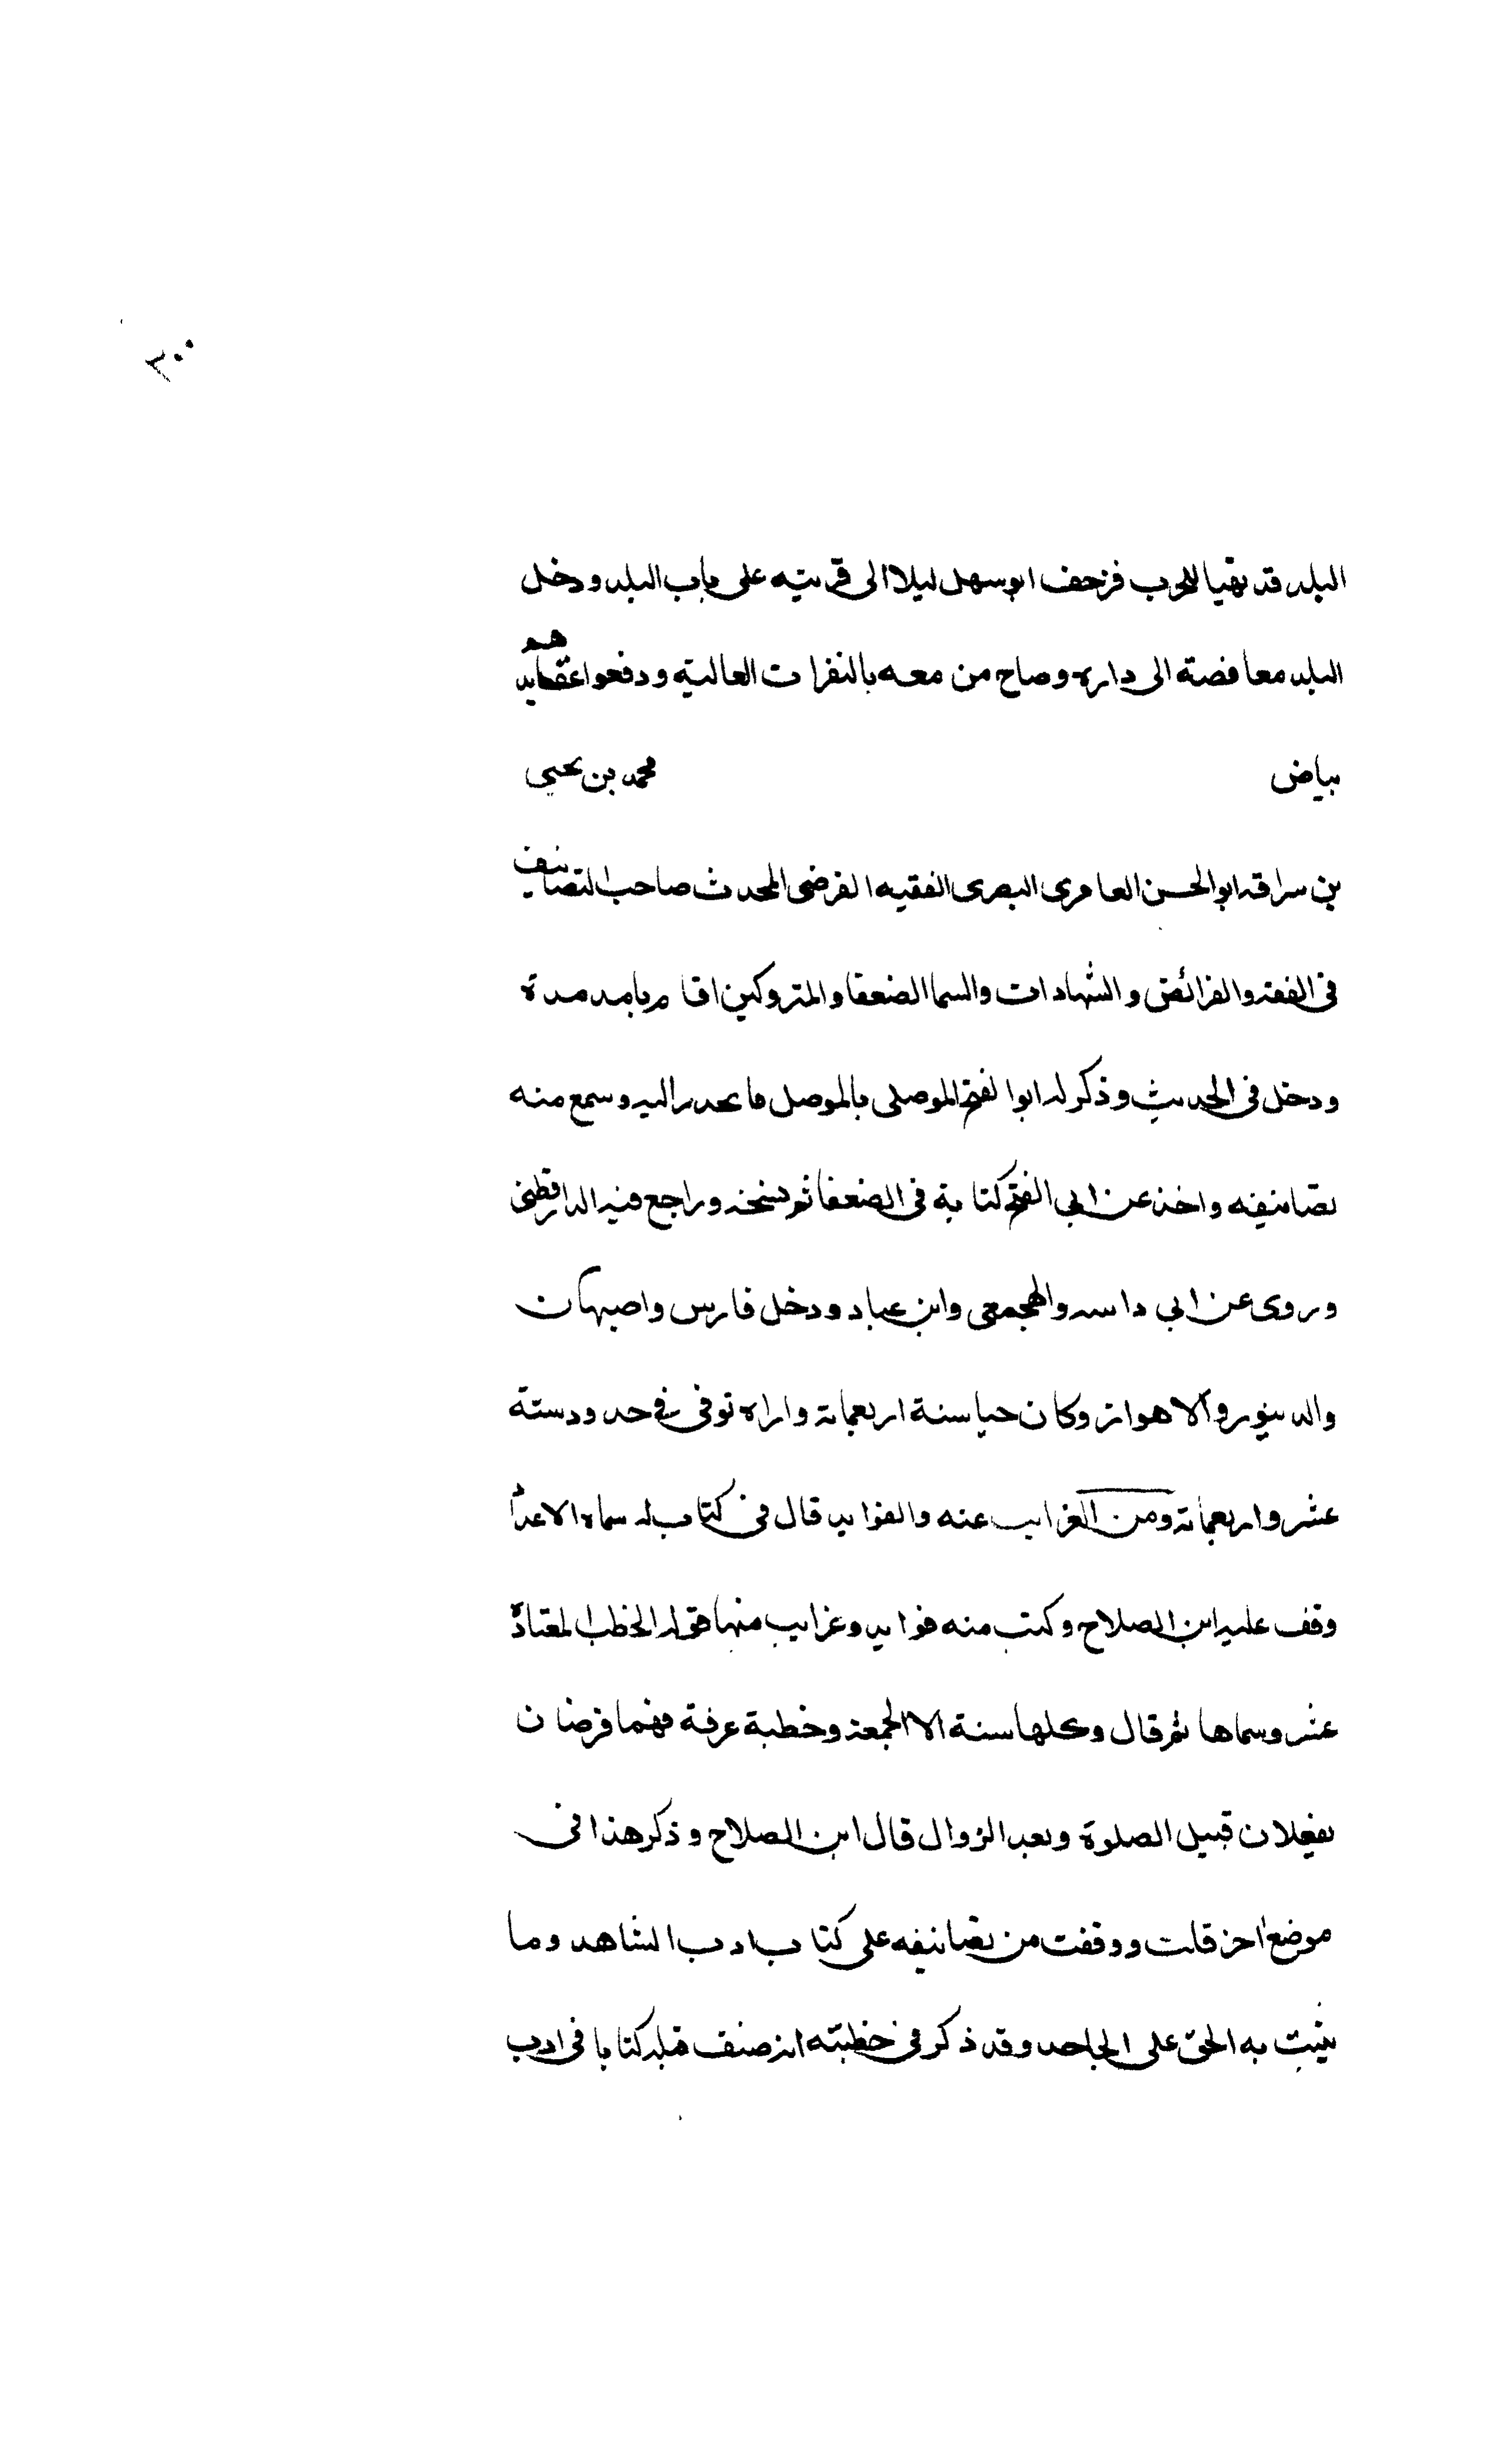 ٢٠٠
البلد قد تهيا للحرب فزحف ابو سهل ليلا الى قريته على باب البلد ودخل
البلد معافصة الى داره وصاح من معه بالنفرات العالية ودفعوا عقايدهم
بياض محمد بن يحيى
بن سراقه ابو الحسن العامرى البصرى الفقيه الفرضى المحدث صاحب التصانيف
فى الفقه والفرائض و الشهادات والسما الضعفا والمتروكين اقام بامد مدة
ودخل فى الحديث وذكر له ابو الفتح الموصلى بالموصل فانحدر اليه وسمع منه
تصانيفه واخذ عن ابي الفتح كتابة فى الضعفا ثم نسخه وراجع فيه الدارقطنى
وروى عن ابي داسه والهجمعى وابن عباد ودخل فارس واصبهان
والدينور والاهواز وكان حيا سنة اربعماية واراه توفى فى حدود ستة
عشر واربعماية ومن الغرايب عنه والفوايد قال فى كتاب له سماه الاعداد
وقف عليه ابن الصلاح وكتب منه فوايد وغرايب منها قوله الخطب المعتادة
عشر وسماها ثم قال وكلها سنة الا الجمعة وخطبة عرفة فهما فرضان
يفعلان قبيل الصلوة وبعد الزوال قال ابن الصلاح وذكر هذا فى
موضع اخر قلت ووقفت من تصانيفه على كتاب ادب الشاهد وما
يثبت به الحق على الجاحد وقد ذكر فى خطبته انه صنف قبله كتابا فى ادب